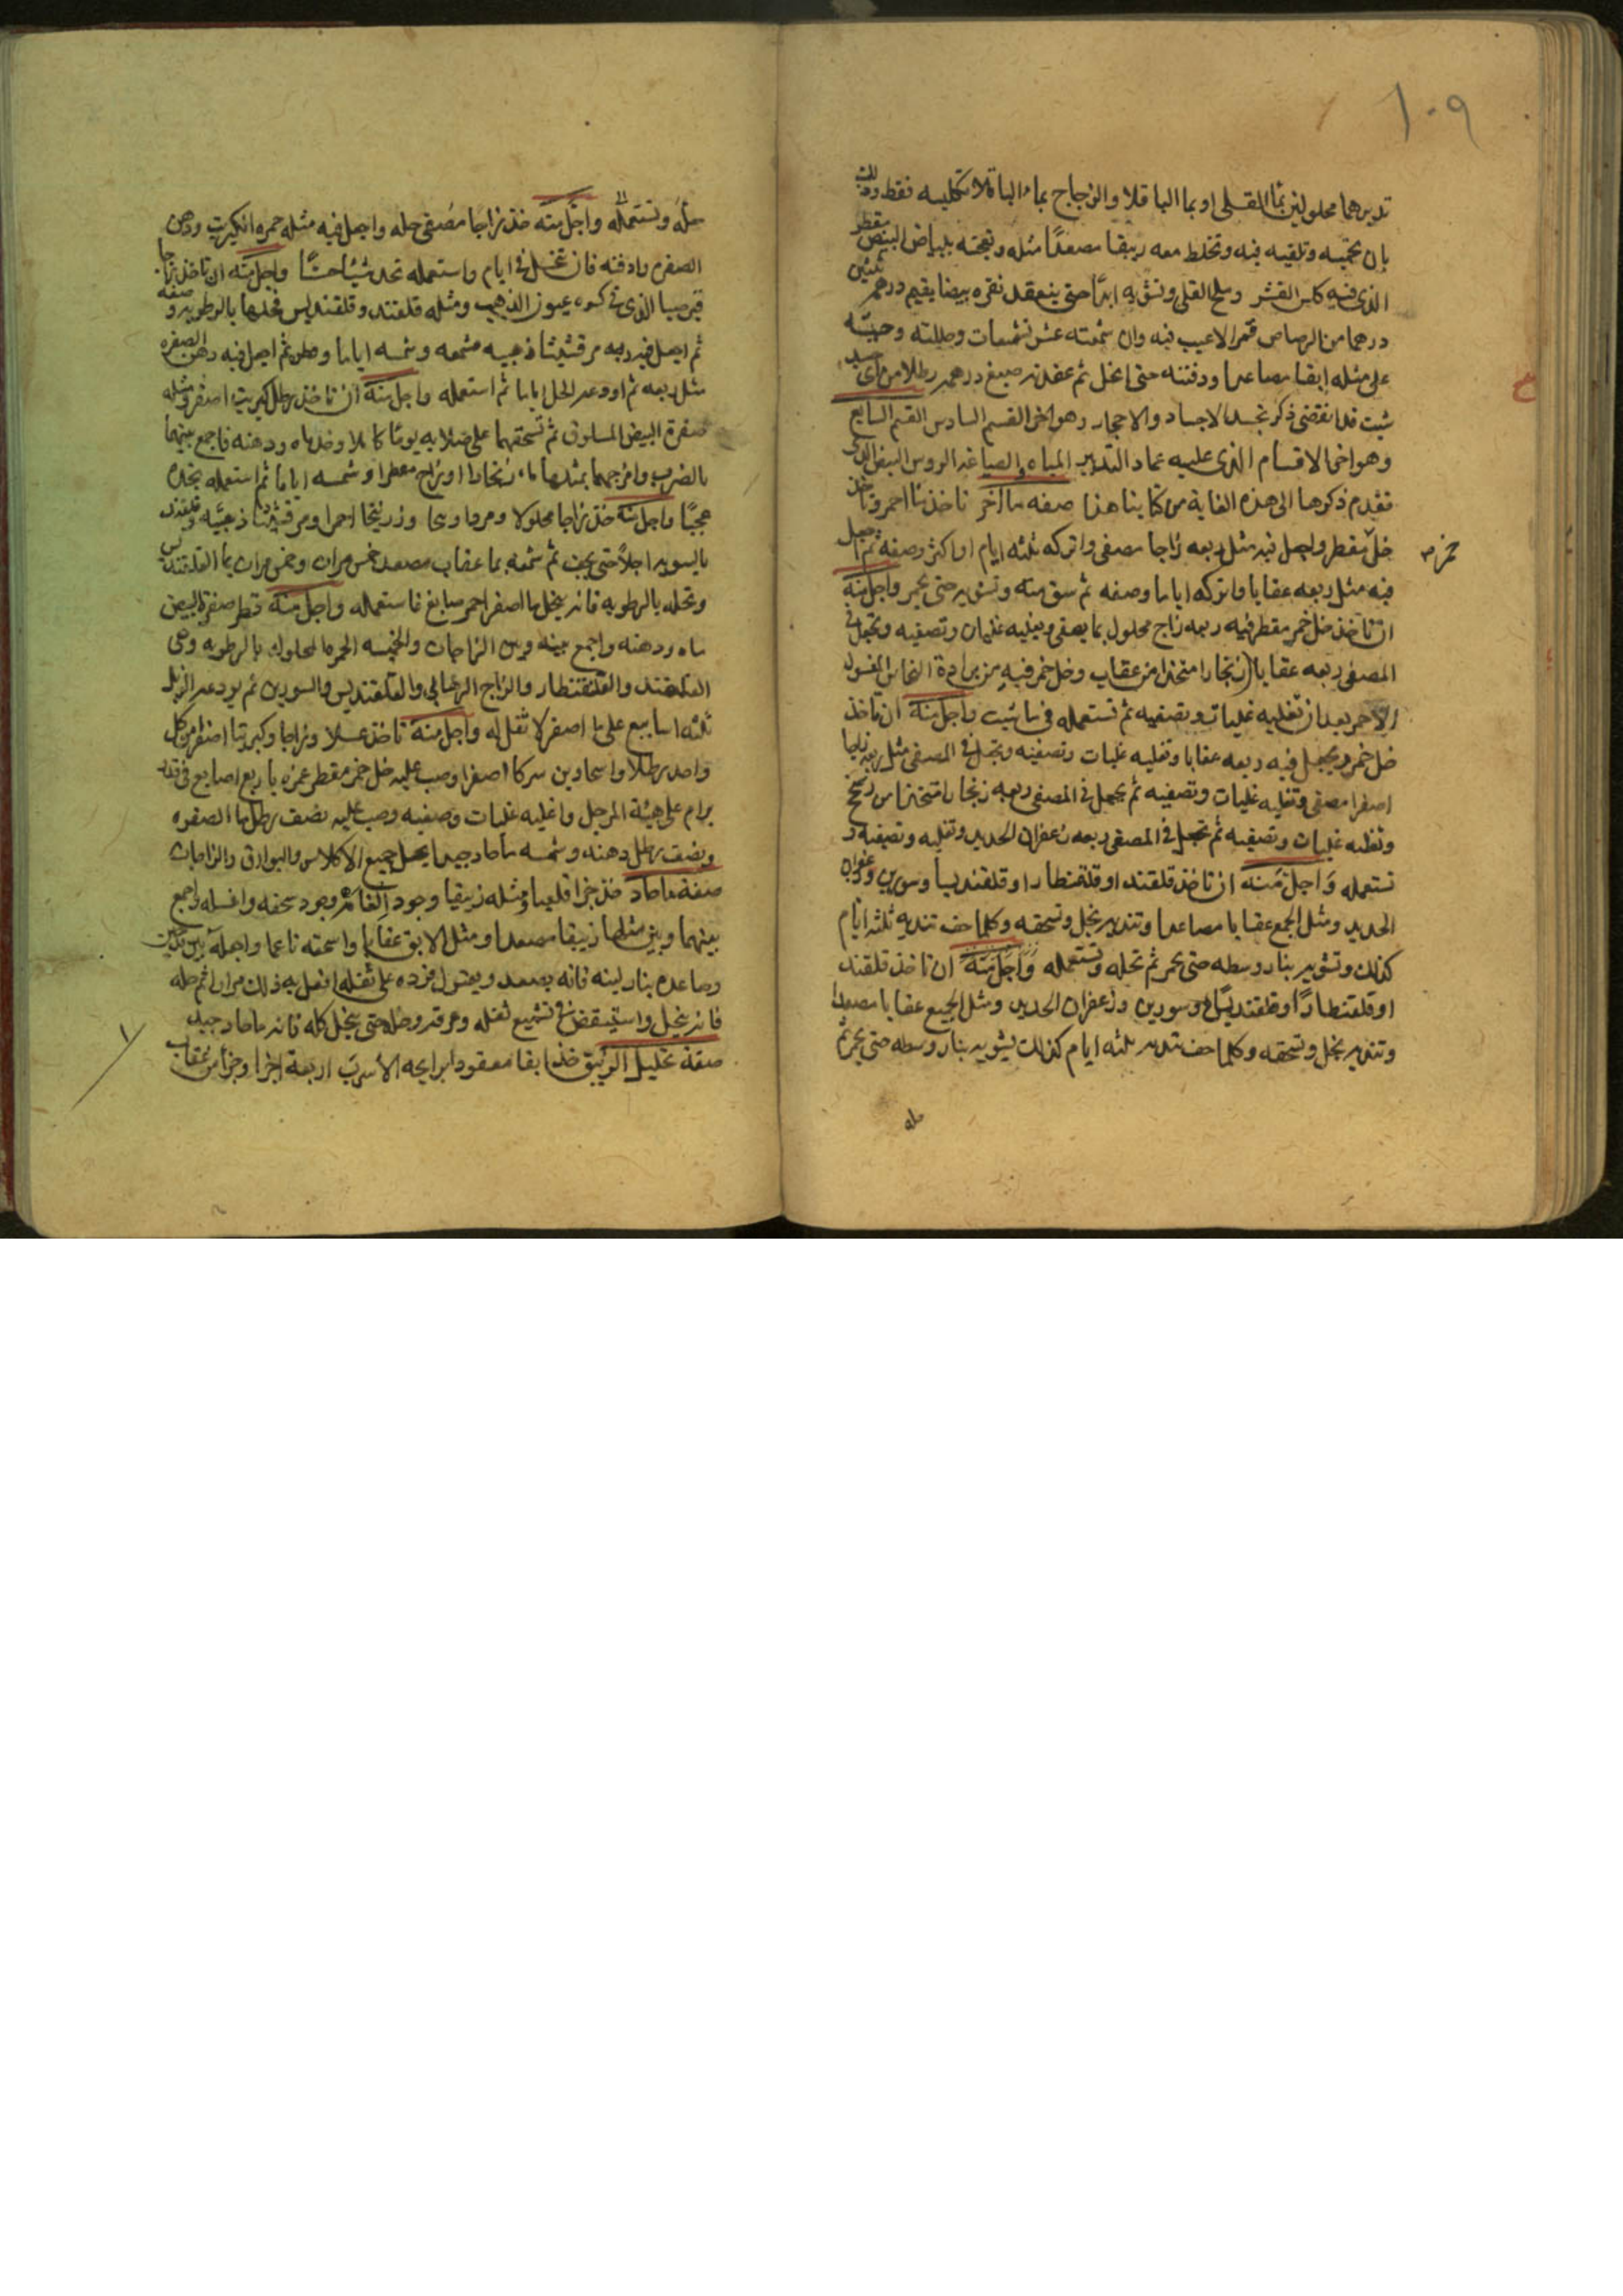 ١٠٩
تدبرهما محلولين بماء القلى او بماء الباقلا والزجاج بماء الباقلا تكليسه فقط وذلك
بان تحميه وتلقيه فيه وتخلط معه زيبقا مصعدا مثله وتعجنه ببياض البيض مقطر
الذى فيه كلس القشر وملح القلى وتشويه ابدا حتى ينعقد نقره بيضا يقيم درهم ثلثين
درهما من الرصاص قمرا لا عيب فيه وان شمعته عشر تشميعات وحللته
على مثله ابقا مصاعدا ودفنته حتى انحل ثم عقدته صبغ درهم رطلا من اى جسد
شيت فلما نقضى ذكر تجسد الاجساد والاحجار وهو اخر القسم السادس القسم السابع
وهو اخر الاقسام الذى عليه عماد التدابير المياه والصباغه الروس البيض
فقدم ذكرها الى هذه الغاية من كتابنا هذا صفه ماء اخر تاخذ ماء احمر وتاخذ
خل مقطر واجعل فيه مثل ربعه زاجا مصفى واتركه ثلثه ايام او اكثر وصفه ثم اجعل
خمر ٣
فيه مثل ربعه عقابا واتركه اياما وصفه ثم سق منه وتشويه حتى يحمر واجل منه
ان تاخذ خل خمر مقطر فيه ربعه زاج محلول بما يصفى ويغليه غليان وتصفيه وتجعل فى
المصفى ربعه عقابا زنجارا متخذا من عقاب وخل خمر فيه من برادة النحاس المغسول
الاحمر بعد ان تغليه غليات وتصفيه ثم تستعمله فى ما شيت واجل منه ان تاخذ
خل خمر ويجعل فيه ربعه عقابا وتغليه غليات وتصفيه وتجعل فى المصفى مثل ربعه زاجا
اصفرا مصفى وتغليه غليات وتصفيه ثم يجعل فى المصفى ربعه زنجارا متخذا من
وتغليه غليات وتصفيه ثم تجعل فى المصفى ربعه زعفران الحديد وتغليه وتصفيه و
تستعمله واجل منه ان تاخذ قلقند او قلقنطارا وقلقنديسا وسورين وزعفران
الحديد ومثل الجمع عقابا مصاعدا وتنديه بخل وتسحقه وكلما جف تنديه ثلثه ايام
كذلك وتشويه بنار وسطه حتى يحمر ثم تحله وتستعمله واجل منه ان تاخذ قلقند
او قلقنطارا وقلقنديسا وسورين وزعفران الحديد ومثل الجميع عقابا مصعدا
وتنديه بخل وتسحقه وكلما جف تنديه ثلثه ايام كذلك يشويه بنار وسطه حتى يحمر ثم
حله
حله وتستعمله واجل منه خذ زاجا مصفى حله واجعل فيه مثله حمره الكبريت ودهن
الصفره وادفنه فان تنحل فى ايام واستعمله تجد شيئا حسنا واجل منه ان تاخذ زاجا
قبرصيا الذى فى كسره عيون الذهب ومثله قلقند وقلقنديس فحلها بالرطوبه وصفه
ثم اجعل فيه ربعه مرقشيثا ذهبيه مشمعه وشمسه اياما ثم اجعل فيه دهن الصفره
مثل ربعه ثم اودعه الحل اياما ثم استعمله واجل منه ان تاخذ رطل كبريت اصفر ومثله
صفرة البيض المسلوق ثم تسحقهما على صلابه يوما كاملا وخذ ماه ودهنه فاجمع بينهما
بالضرب وامزجهما بمثلها ماء زنجارا او زاج مقطرا وشمسه اياما ثم استعمله تجده
عجبا واجل منه خذ زاجا محلولا وزرنيخا احمرا ومرقشيثا ذهبيه وقلقند
بالسويه اجلا حتى يجف ثم شمعه بما عقاب مصعد خمس مرات وخمس مرات بما القلقند
وتحله بالرطوبه فانه ينحل ماء اصفر احمر صابغ فاستعمله واجل منه قطر صفرة البيض
ماه ودهنه واجمع بينه وبين الزاجات والخمسه الحمره المحلوله بالرطوبه وهى
القلقند والقلقنطار والزاج والقلقنديس والسورين ثم يودعه الزبل
ثلثه اسابيع على ما اصفر لا ثقل له واجل منه تاخذ عسلا وزاجا وكبريتا اصفرا من كل
واحد رطلا اصفرا وصب عليه خل خمر مقطر غمره باربع اصابع فى قدر
برام على هيئة المرجل واغليه غليات وصفيه وصب عليه نصف رطل ماء الصفره
ونصف رطل دهنه وشمسه ماحاد جيدا يحل جميع الاكلاس والبوارق والزاجات
صفة ماحاد خذ جزا قلعيا ومثله زيبقا وجود الغامه وجود سحقه واغسله واجمع
بينهما وبين مثلهما زيبقا مصعدا ومثل الابق عقابا واسحقه ناعما واجعله بين قدحين
وصاعده بنار لينه فانه يصعد فرده على ثقله افعل به ذلك مرارا ثم حله
فانه ينحل تشميع ثقله وحله حتى ينحل كله فانه ماحاد جيد
صفة تحليل الزيبق خذ ابقا معقودا برايحه الاسرب اربعة اجزا وجزا من عقاب